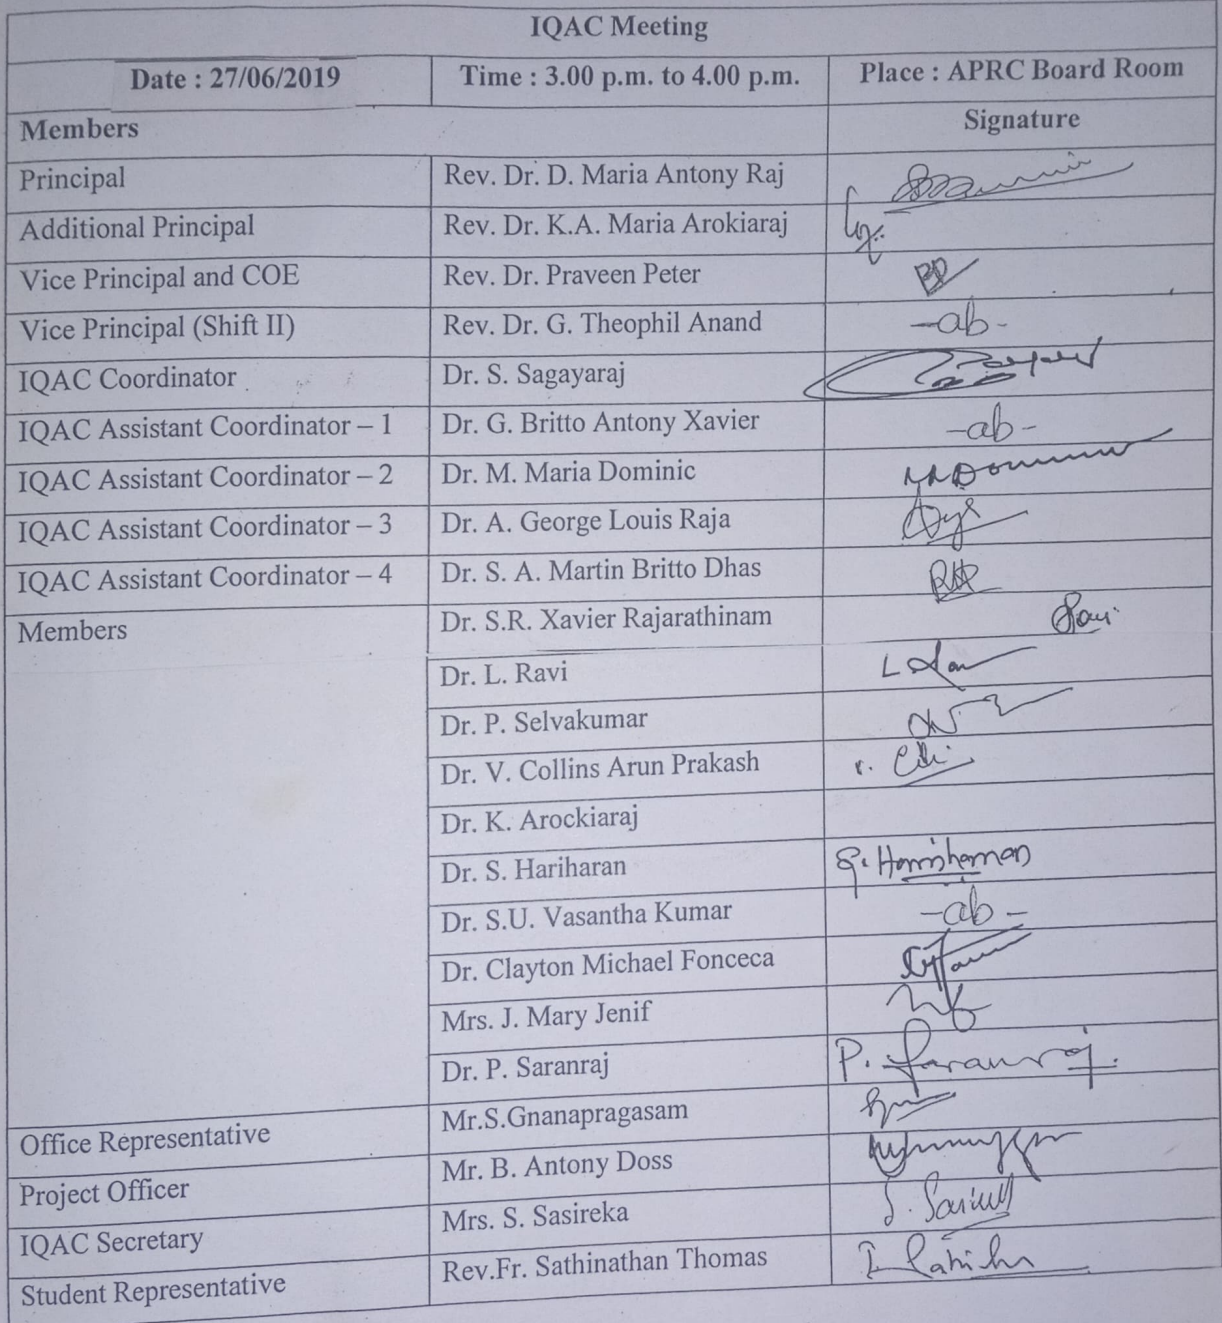 IQAC Meeting
Date : 27/06/2019 Time : 3.00 p.m. to 4.00 p.m. Place : APRC Board Room
Members Signature
Principal Rev. Dr. D. Maria Antony Raj
Additional Principal Rev. Dr. K.A. Maria Arokiaraj
Vice Principal and COE Rev. Dr. Praveen Peter
Vice Principal (Shift II) Rev. Dr. G. Theophil Anand -ab-
IQAC Coordinator Dr. S. Sagayaraj
IQAC Assistant Coordinator – 1 Dr. G. Britto Antony Xavier -ab-
IQAC Assistant Coordinator – 2 Dr. M. Maria Dominic
IQAC Assistant Coordinator – 3 Dr. A. George Louis Raja
IQAC Assistant Coordinator – 4 Dr. S. A. Martin Britto Dhas
Members Dr. S.R. Xavier Rajarathinam
Dr. L. Ravi
Dr. P. Selvakumar
Dr. V. Collins Arun Prakash
Dr. K. Arockiaraj
Dr. S. Hariharan
Dr. S.U. Vasantha Kumar -ab-
Dr. Clayton Michael Fonceca
Mrs. J. Mary Jenif
Dr. P. Saranraj P. Saranraj.
Office Representative Mr.S.Gnanapragasam
Project Officer Mr. B. Antony Doss
IQAC Secretary Mrs. S. Sasireka
Student Representative Rev.Fr. Sathinathan Thomas